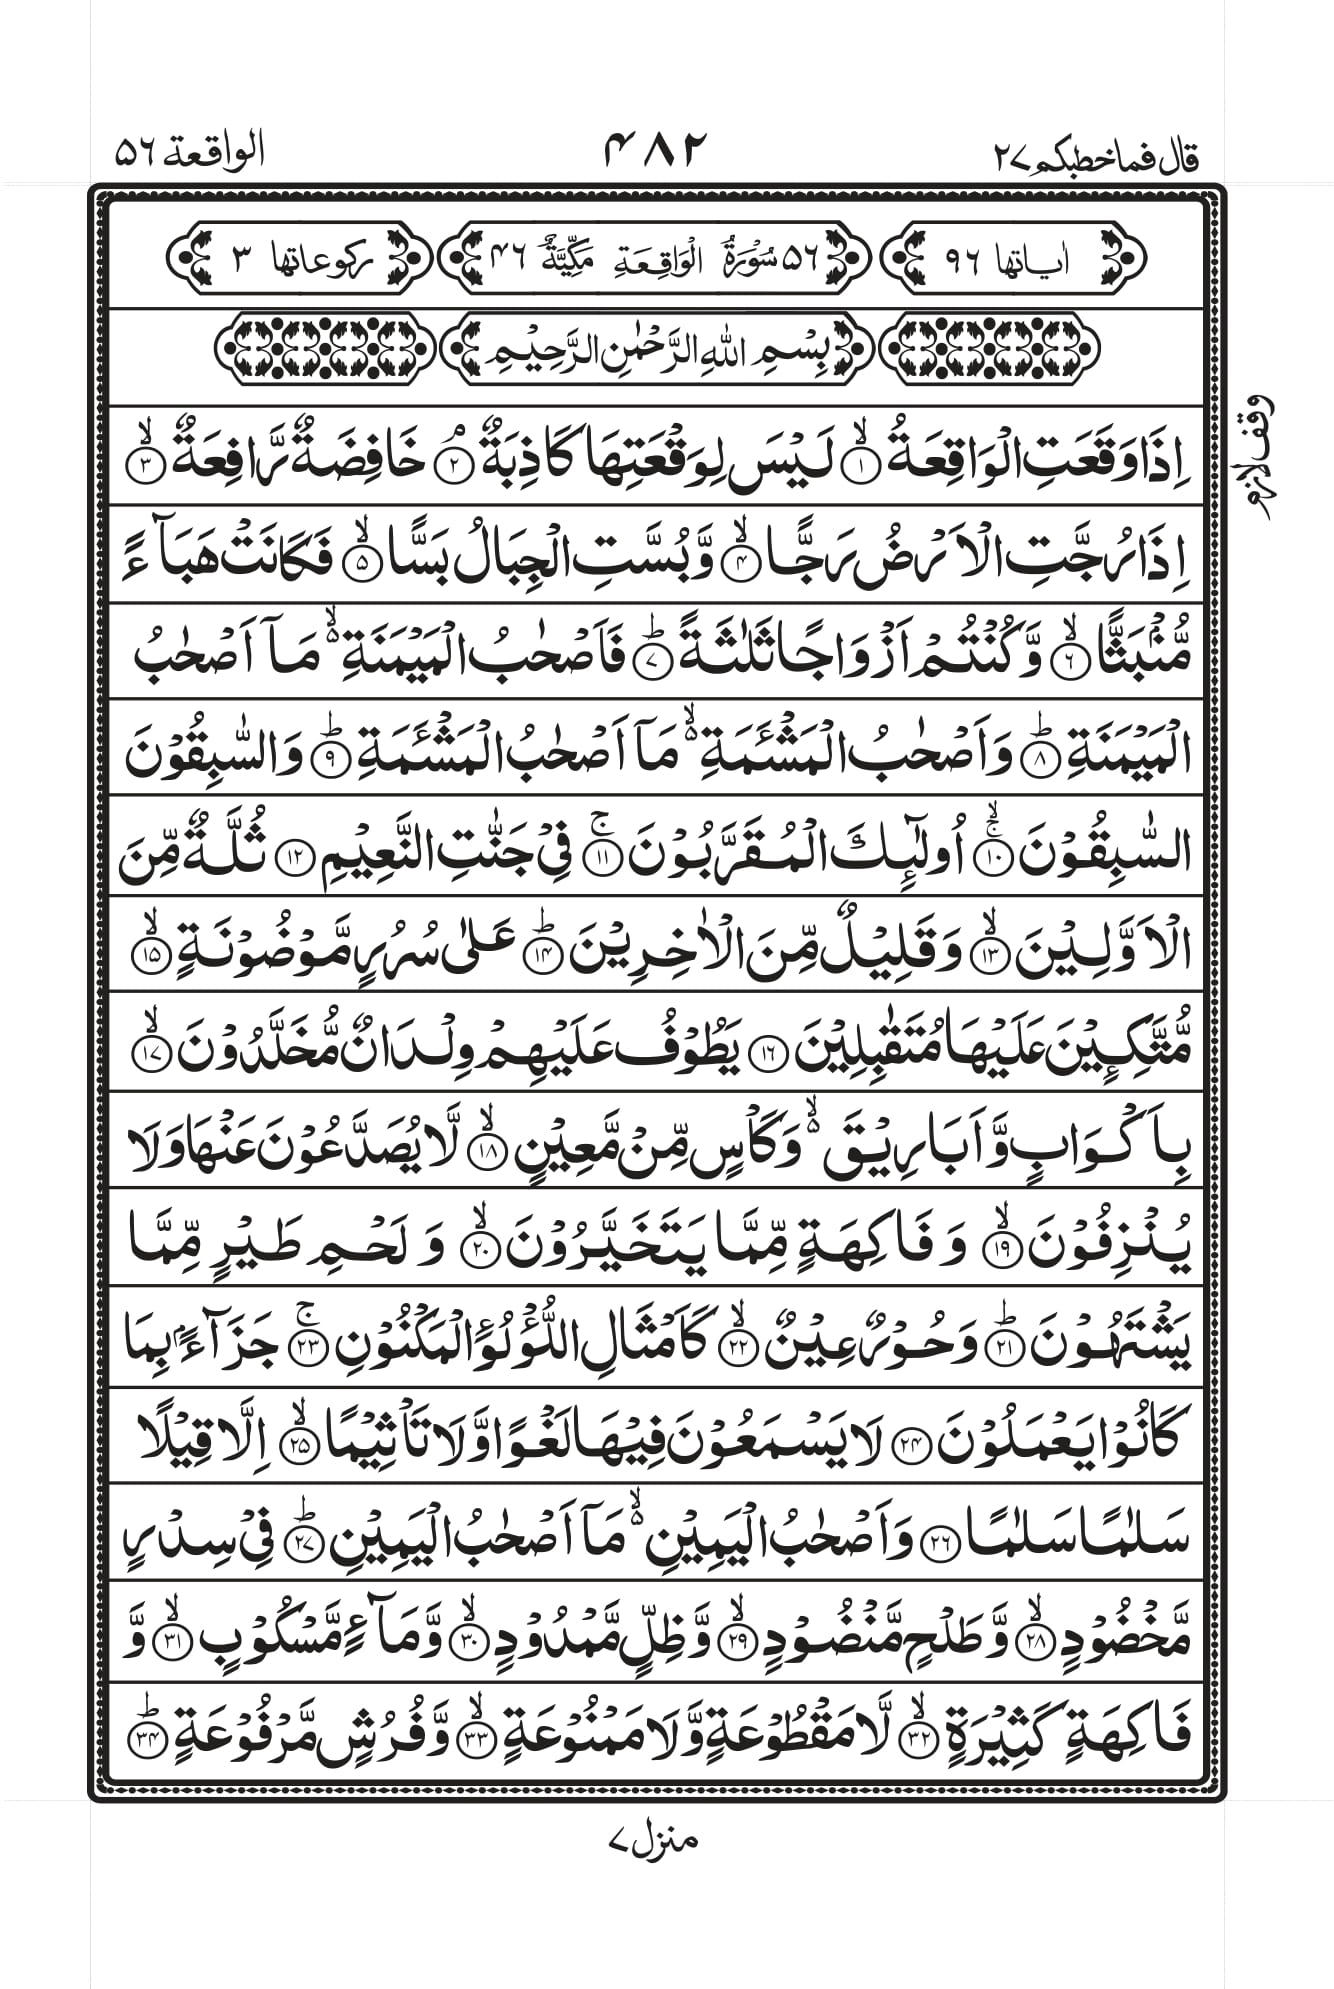 قال فماخطبكم ۲۷ ۴۸۲ الواقعة ۵۶
اٰیاتها ۹۶ ۵۶ سُوْرَةُ الْوَاقِعَةِ مَكِّیَّةٌ ۴۶ ركوعاتها ۳
بِسْمِ اللّٰهِ الرَّحْمٰنِ الرَّحِیْمِ
اِذَا وَقَعَتِ الْوَاقِعَةُ ۙ﴿۱﴾ لَیْسَ لِوَقْعَتِهَا كَاذِبَةٌ ۘ﴿۲﴾ خَافِضَةٌ رَّافِعَةٌ ۙ﴿۳﴾
وقف لازم
اِذَا رُجَّتِ الْاَرْضُ رَجًّا ۙ﴿۴﴾ وَّ بُسَّتِ الْجِبَالُ بَسًّا ۙ﴿۵﴾ فَكَانَتْ هَبَآءً
مُّنْۢبَثًّا ۙ﴿۶﴾ وَّ كُنْتُمْ اَزْوَاجًا ثَلٰثَةً ؕ﴿۷﴾ فَاَصْحٰبُ الْمَیْمَنَةِ ۙ۬ مَاۤ اَصْحٰبُ
الْمَیْمَنَةِ ؕ﴿۸﴾ وَ اَصْحٰبُ الْمَشْـَٔمَةِ ۙ۬ مَاۤ اَصْحٰبُ الْمَشْـَٔمَةِ ؕ﴿۹﴾ وَ السّٰبِقُوْنَ
السّٰبِقُوْنَ ۚۙ﴿۱۰﴾ اُولٰٓىِٕكَ الْمُقَرَّبُوْنَ ۚ﴿۱۱﴾ فِیْ جَنّٰتِ النَّعِیْمِ ﴿۱۲﴾ ثُلَّةٌ مِّنَ
الْاَوَّلِیْنَ ۙ﴿۱۳﴾ وَ قَلِیْلٌ مِّنَ الْاٰخِرِیْنَ ؕ﴿۱۴﴾ عَلٰی سُرُرٍ مَّوْضُوْنَةٍ ۙ﴿۱۵﴾
مُّتَّكِـِٕیْنَ عَلَیْهَا مُتَقٰبِلِیْنَ ﴿۱۶﴾ یَطُوْفُ عَلَیْهِمْ وِلْدَانٌ مُّخَلَّدُوْنَ ۙ﴿۱۷﴾
بِاَكْوَابٍ وَّ اَبَارِیْقَ ۙ۬ وَ كَاْسٍ مِّنْ مَّعِیْنٍ ۙ﴿۱۸﴾ لَّا یُصَدَّعُوْنَ عَنْهَا وَ لَا
یُنْزِفُوْنَ ۙ﴿۱۹﴾ وَ فَاكِهَةٍ مِّمَّا یَتَخَیَّرُوْنَ ۙ﴿۲۰﴾ وَ لَحْمِ طَیْرٍ مِّمَّا
یَشْتَهُوْنَ ؕ﴿۲۱﴾ وَ حُوْرٌ عِیْنٌ ۙ﴿۲۲﴾ كَاَمْثَالِ اللُّؤْلُؤِ الْمَكْنُوْنِ ۚ﴿۲۳﴾ جَزَآءًۢ بِمَا
كَانُوْا یَعْمَلُوْنَ ﴿۲۴﴾ لَا یَسْمَعُوْنَ فِیْهَا لَغْوًا وَّ لَا تَاْثِیْمًا ۙ﴿۲۵﴾ اِلَّا قِیْلًا
سَلٰمًا سَلٰمًا ﴿۲۶﴾ وَ اَصْحٰبُ الْیَمِیْنِ ۙ۬ مَاۤ اَصْحٰبُ الْیَمِیْنِ ؕ﴿۲۷﴾ فِیْ سِدْرٍ
مَّخْضُوْدٍ ۙ﴿۲۸﴾ وَّ طَلْحٍ مَّنْضُوْدٍ ۙ﴿۲۹﴾ وَّ ظِلٍّ مَّمْدُوْدٍ ۙ﴿۳۰﴾ وَّ مَآءٍ مَّسْكُوْبٍ ۙ﴿۳۱﴾ وَّ
فَاكِهَةٍ كَثِیْرَةٍ ۙ﴿۳۲﴾ لَّا مَقْطُوْعَةٍ وَّ لَا مَمْنُوْعَةٍ ۙ﴿۳۳﴾ وَّ فُرُشٍ مَّرْفُوْعَةٍ ؕ﴿۳۴﴾
منزل ۷